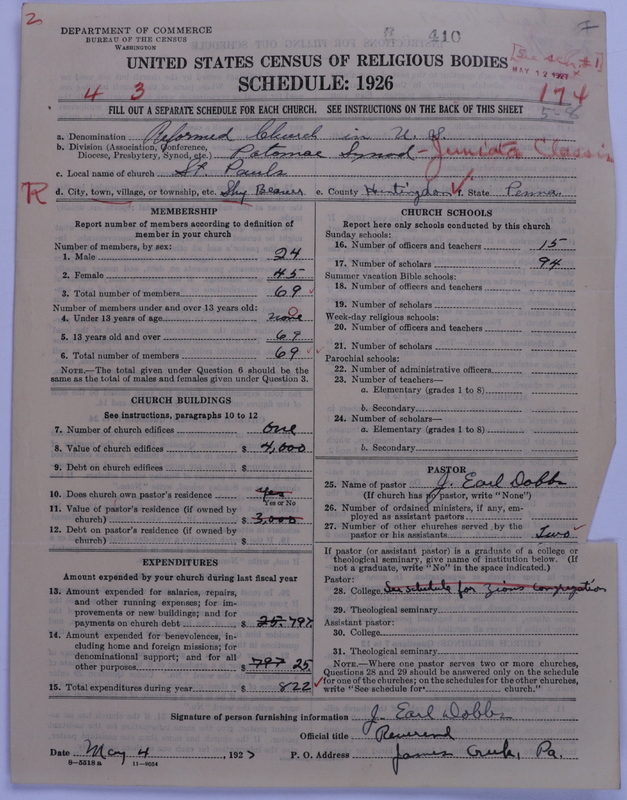 2
DEPARTMENT OF COMMERCE
BUREAU OF THE CENSUS
WASHINGTON
410
UNITED STATES CENSUS OF RELIGIOUS BODIES
MAY 12 1927
SCHEDULE: 1926
4 3
174
FILL OUT A SEPARATE SCHEDULE FOR EACH CHURCH. SEE INSTRUCTIONS ON THE BACK OF THIS SHEET
a. Denomination Reformed Church in U. S.
b. Division (Association, Conference, Diocese, Presbytery, Synod, etc.) Potomac Synod - Juniata Classis
c. Local name of church St. Pauls
R d. City, town, village, or township, etc. Shy Beaver e. County Huntingdon f. State Penna.
MEMBERSHIP
Report number of members according to definition of member in your church
Number of members, by sex:
1. Male 24
2. Female 45
3. Total number of members 69
Number of members under and over 13 years old:
4. Under 13 years of age none 0
5. 13 years old and over 69
6. Total number of members 69
NOTE.—The total given under Question 6 should be the same as the total of males and females given under Question 3.
CHURCH BUILDINGS
See instructions, paragraphs 10 to 12
7. Number of church edifices one
8. Value of church edifices $ 4,000
9. Debt on church edifices $
10. Does church own pastor's residence Yes
Yes or No
11. Value of pastor's residence (if owned by church) $ 3,000
12. Debt on pastor's residence (if owned by church) $
EXPENDITURES
Amount expended by your church during last fiscal year
13. Amount expended for salaries, repairs, and other running expenses; for improvements or new buildings; and for payments on church debt $ 25. 797
14. Amount expended for benevolences, including home and foreign missions; for denominational support; and for all other purposes $ 797 25
15. Total expenditures during year $ 822
CHURCH SCHOOLS
Report here only schools conducted by this church
Sunday schools:
16. Number of officers and teachers 15
17. Number of scholars 94
Summer vacation Bible schools:
18. Number of officers and teachers
19. Number of scholars
Week-day religious schools:
20. Number of officers and teachers
21. Number of scholars
Parochial schools:
22. Number of administrative officers
23. Number of teachers—
a. Elementary (grades 1 to 8)
b. Secondary
24. Number of scholars—
a. Elementary (grades 1 to 8)
b. Secondary
PASTOR
25. Name of pastor J. Earl Dobbs
(If church has no pastor, write "None")
26. Number of ordained ministers, if any, employed as assistant pastors
27. Number of other churches served by the pastor or his assistants Two
If pastor (or assistant pastor) is a graduate of a college or theological seminary, give name of institution below. (If not a graduate, write "No" in the space indicated.)
Pastor:
28. College See schedule for Zions Congregation
29. Theological seminary
Assistant pastor:
30. College
31. Theological seminary
NOTE.—Where one pastor serves two or more churches, Questions 28 and 29 should be answered only on the schedule for one of the churches; on the schedules for the other churches, write "See schedule for church."
Signature of person furnishing information J. Earl Dobbs
Official title Reverend
Date May 4, 1927 P. O. Address James Creek, Pa.
8—5518 a 11—9024